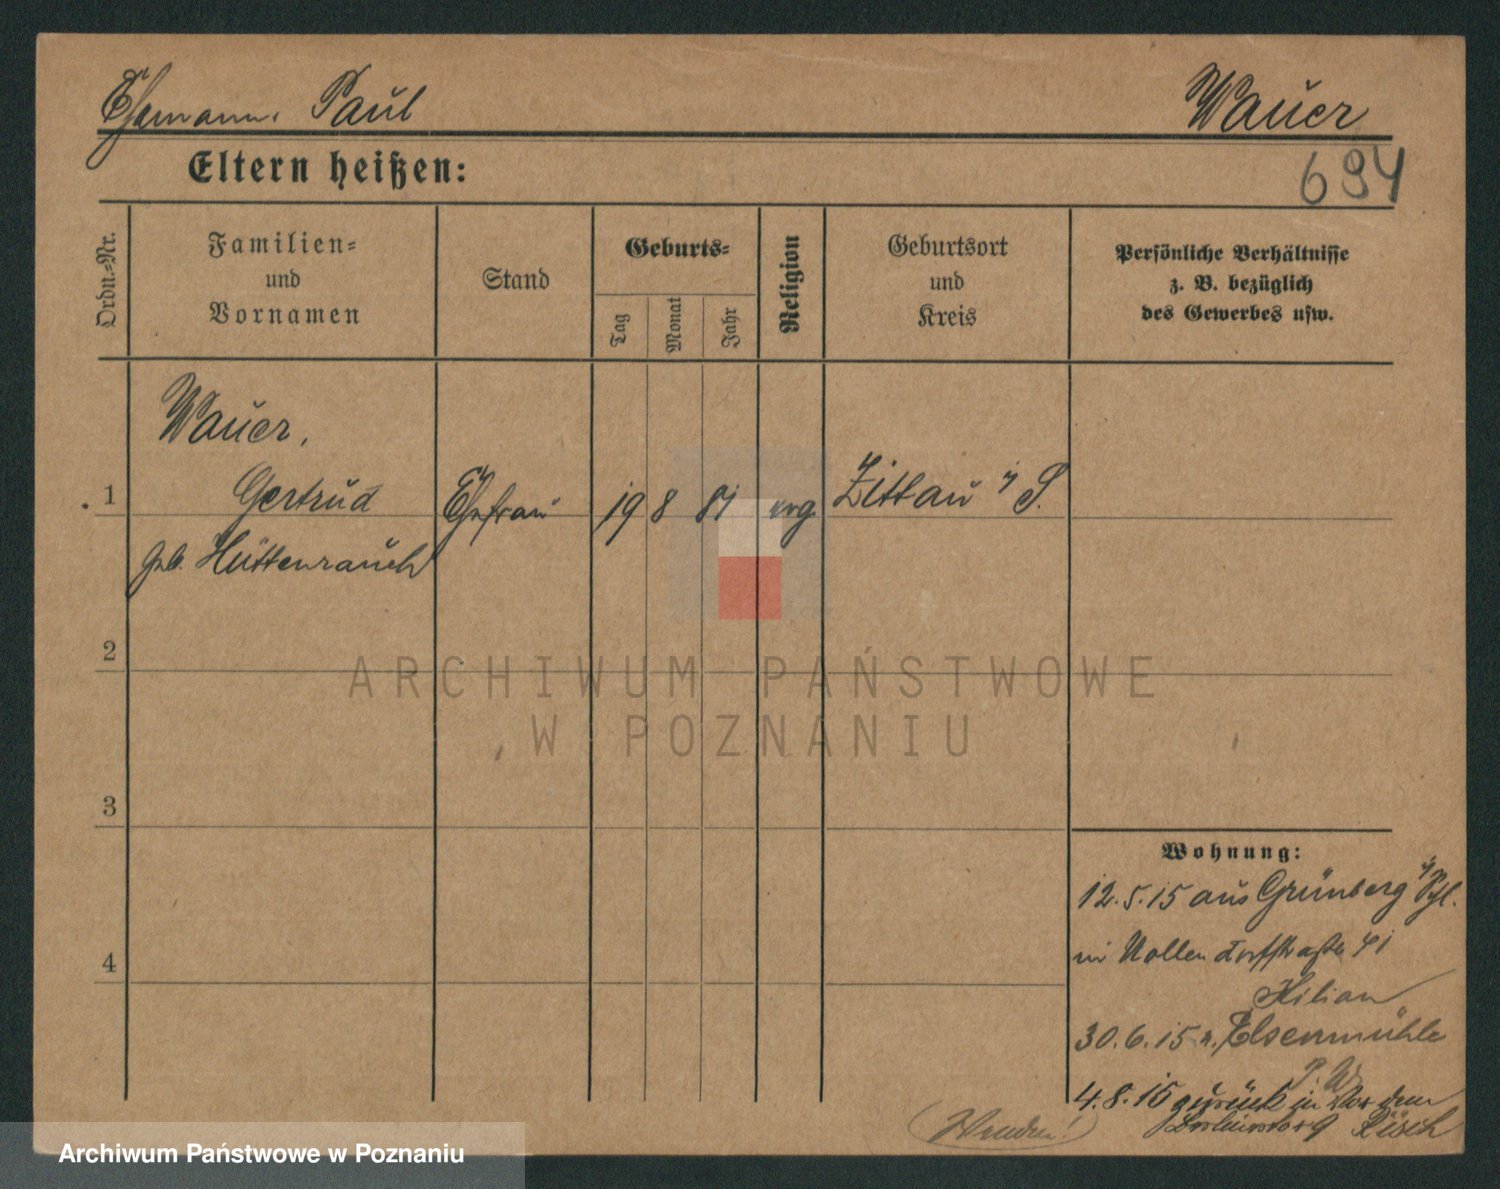 Ehemann: Paul Wauer
Eltern heißen:
694
Ordn.-Nr.
Familien-
und
Vornamen
Stand
Geburts-
Tag
Monat
Jahr
Religion
Geburtsort
und
Kreis
Persönliche Verhältnisse
z. B. bezüglich
des Gewerbes usw.
Wauer,
1 Gertrud Ehefrau 19 8 81 evg. Zittau i/S.
geb. Hüttenrauch
2
3
4
Wohnung:
12.5.15 aus Grünberg i/Schl.
in Nollendorfstraße 41
Kilian
30.6.15 n. Elsenmühle
P. W.
4.8.15 zurück in Vor dem
9 Rösch
(Wenden!)
ARCHIWUM PAŃSTWOWE
W POZNANIU
Archiwum Państwowe w Poznaniu